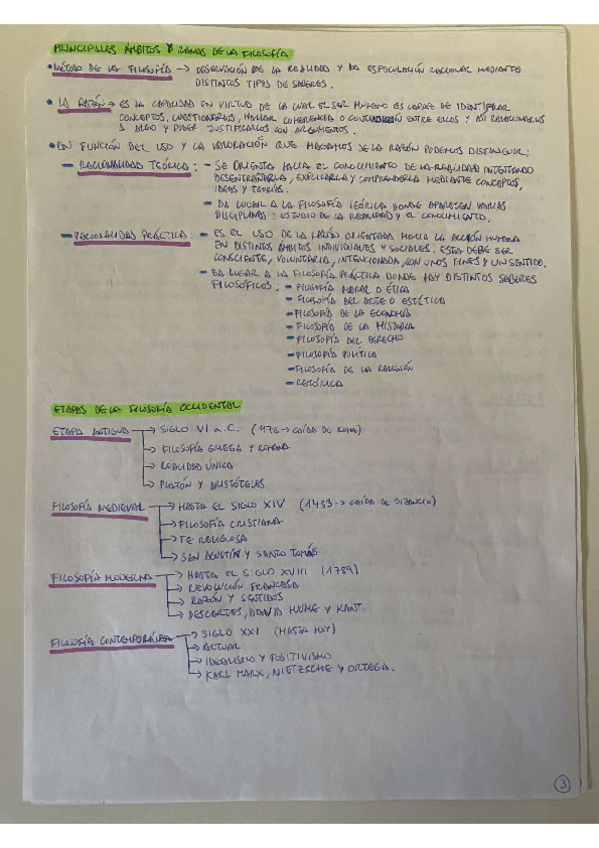 PRINCIPALES ÁMBITOS Y RAMAS DE LA FILOSOFÍA
• MÉTODO DE LA FILOSOFÍA → OBSERVACIÓN DE LA REALIDAD Y LA ESPECULACIÓN RACIONAL MEDIANTE
DISTINTOS TIPOS DE SABERES.
• LA RAZÓN → ES LA CAPACIDAD EN VIRTUD DE LA CUAL EL SER HUMANO ES CAPAZ DE IDENTIFICAR
CONCEPTOS, CUESTIONARLOS, HALLAR COHERENCIA O CONTRADICCIÓN ENTRE ELLOS Y ASÍ RELACIONARLOS
A ALGO Y PODER JUSTIFICARLOS CON ARGUMENTOS.
• EN FUNCIÓN DEL USO Y LA VALORACIÓN QUE HAGAMOS DE LA RAZÓN PODEMOS DISTINGUIR:
— RACIONALIDAD TEÓRICA: - SE ORIENTA HACIA EL CONOCIMIENTO DE LA REALIDAD INTENTANDO
DESENTRAÑARLA, EXPLICARLA Y COMPRENDERLA MEDIANTE CONCEPTOS,
IDEAS Y TEORÍAS.
- DA LUGAR A LA FILOSOFÍA TEÓRICA DONDE APARECEN VARIAS
DISCIPLINAS: ESTUDIO DE LA REALIDAD Y EL CONOCIMIENTO.
— RACIONALIDAD PRÁCTICA: - ES EL USO DE LA RAZÓN ORIENTADA HACIA LA ACCIÓN HUMANA
EN DISTINTOS ÁMBITOS INDIVIDUALES Y SOCIALES. ESTA DEBE SER
CONSCIENTE, VOLUNTARIA, INTENCIONADA, CON UNOS FINES Y UN SENTIDO.
- DA LUGAR A LA FILOSOFÍA PRÁCTICA DONDE HAY DISTINTOS SABERES
FILOSÓFICOS: - FILOSOFÍA MORAL O ÉTICA
- FILOSOFÍA DEL ARTE O ESTÉTICA
- FILOSOFÍA DE LA ECONOMÍA
- FILOSOFÍA DE LA HISTORIA
- FILOSOFÍA DEL DERECHO
- FILOSOFÍA POLÍTICA
- FILOSOFÍA DE LA RELIGIÓN
- RETÓRICA
ETAPAS DE LA FILOSOFÍA OCCIDENTAL
ETAPA ANTIGUA → SIGLO VI a.C. (476 → CAÍDA DE ROMA)
→ FILOSOFÍA GRIEGA Y ROMANA
→ REALIDAD ÚNICA
→ PLATÓN Y ARISTÓTELES
FILOSOFÍA MEDIEVAL → HASTA EL SIGLO XIV (1453 → CAÍDA DE BIZANCIO)
→ FILOSOFÍA CRISTIANA
→ FE RELIGIOSA
→ SAN AGUSTÍN Y SANTO TOMÁS
FILOSOFÍA MODERNA → HASTA EL SIGLO XVIII (1789)
→ REVOLUCIÓN FRANCESA
→ RAZÓN Y SENTIDOS
→ DESCARTES, DAVID HUME Y KANT.
FILOSOFÍA CONTEMPORÁNEA → SIGLO XXI (HASTA HOY)
→ ACTUAL
→ IDEALISMO Y POSITIVISMO
→ KARL MARX, NIETZSCHE Y ORTEGA.
3